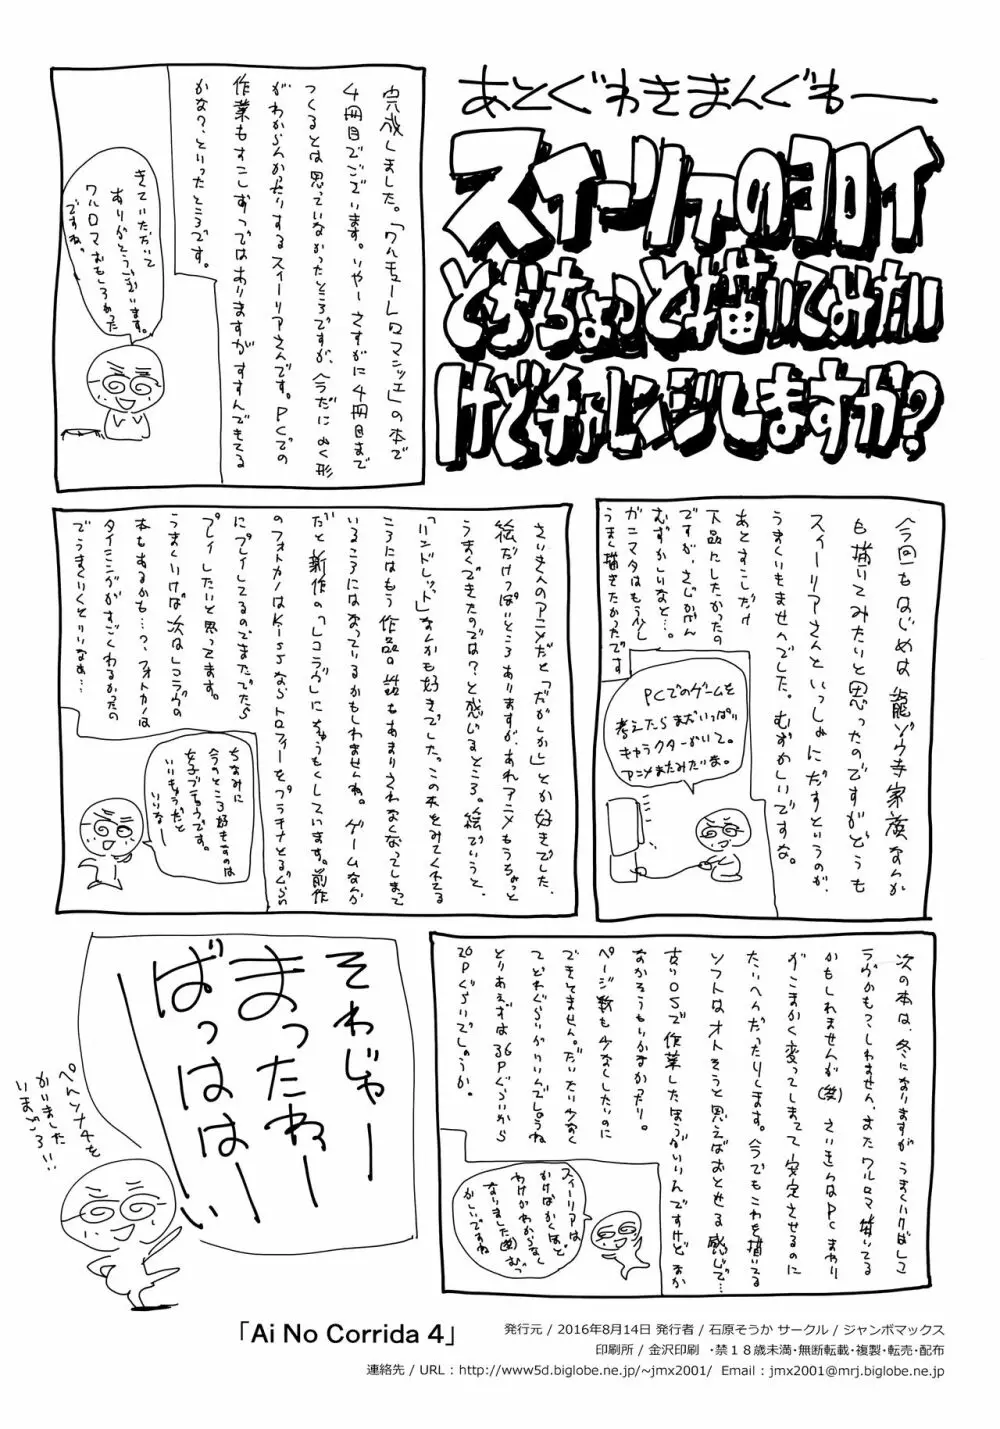 あとぐわきまんぐわー
スイーリアのヨロイ
とかちょっと描いてみたい
けどチャレンジしますか?
完成しました。「ワルキューレロマンツェ」の本で
4冊目でございます。いやーさすがに4冊目まで
つくるとは思っていなかったところですが、今だにぬく形
がわからんかったりするスイーリアさんです。PCでの
作業もすこしずつではありますがすすんでもてる
かな?、といったところです。
きていただいて
ありがとうございます。
ワルロマおもしろかった
ですね。
今回もはじめは龍ゾウ寺家族なんか
も描いてみたいと思ったのですがどうも
スイーリアさんといっしょにだすというのが、
うまくいきませんでした。むずかしいですな。
あとすこしだけ
下品にしたかったの
ですが、さじかげん
むずかしいなと…。
ガニマタはもう少し
うまく描きたかったです
PCでのゲームを
考えたらまだいっぱい
キャラクターがいて。
アニメまたみたいな。
さいきんのアニメだと「だがしかし」とか好きでした、
絵だけっぽいところありますが、あれアニメもうちょっと
うまくできたのでは?と感じるところ。絵でいうと、
「ハンドレッド」なんかも好きでした。この本をみてくれてる
ころにはもう作品の話もあまりされなくなってしまって
いるころにはなっているかもしれませんね。ゲームなんか
だと新作の「レコラヴ」にちゅうもくしています。前作
のフォトカノはKissならトロフィーをプラチナとるぐらい
にプレイしてるのでまたでたら
プレイしたいと思ってます。
うまくいけば次はレコラヴの
本もあるかも…?、フォトカノは
タイミングがすごくわるかったの
でうまくいくといいなぁ…
ちなみに
今のところ好きなのは
女子プロゥです。
いいキャラだと
いいなー
次の本は、冬になりますがうまくハクばレコ
ラヴかもしれません、またワルロマ描いてる
かもしれませんが(笑)さいきんはPCまわり
がこまかく変ってしまって安定させるのに
たいへんだったりします。今でもこれを描いてる
ソフトはオトそうと思えばおとせる感じで…
古いOSで作業したほうがいいんですけどなか
なかそうもいかなかったり。
ページ数も少なくしたいのに
できてません。だいたいわなく
てどれぐらいがいいんでしょうね
とりあえずは36Pぐらいから
20Pぐらいでしょうか。
スイーリアは
かけばかくほど
わけがわからなく
なりました(笑)むづ
かしいですね
それじゃー
まったねー
ばっははーい
ペンンナ4を
かいました
いまごろ!!
「Ai No Corrida 4」
発行元 / 2016年8月14日 発行者 / 石原そうか サークル / ジャンボマックス
印刷所 / 金沢印刷 ・禁18歳未満・無断転載・複製・転売・配布
連絡先 / URL : http://www5d.biglobe.ne.jp/~jmx2001/ Email : jmx2001@mrj.biglobe.ne.jp